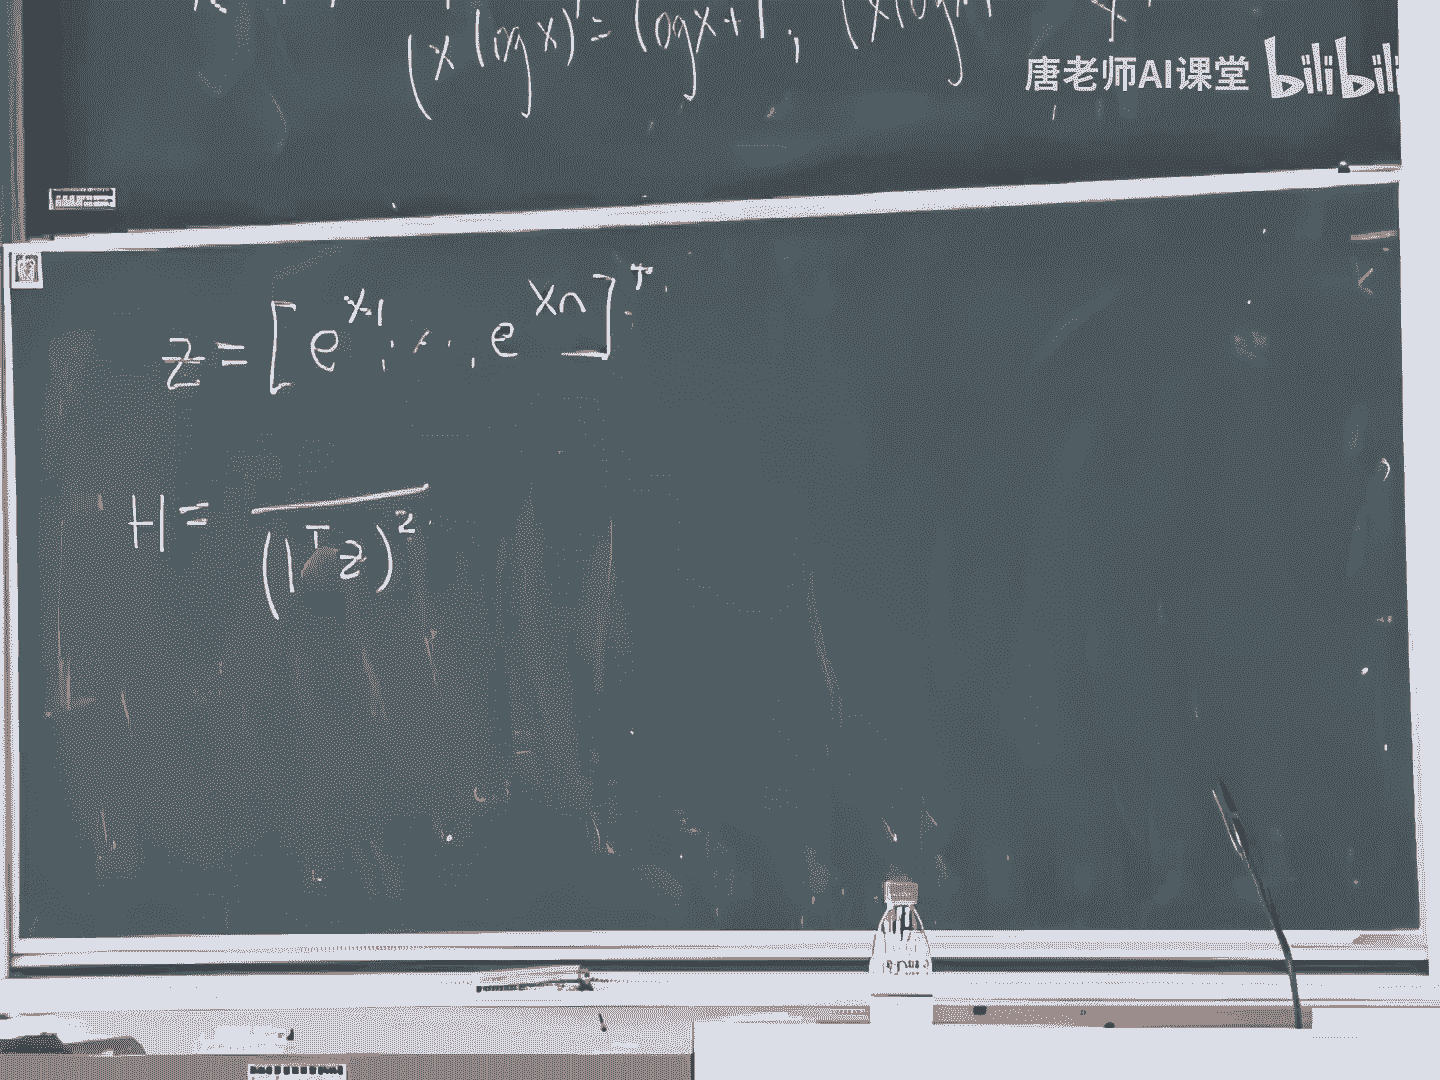 (x log x)' = log x + 1 , (x log x
唐老师AI课堂 bilibili
z = [e^{x_1}, ..., e^{x_n}]^T
H = \frac{}{(1^T z)^2}